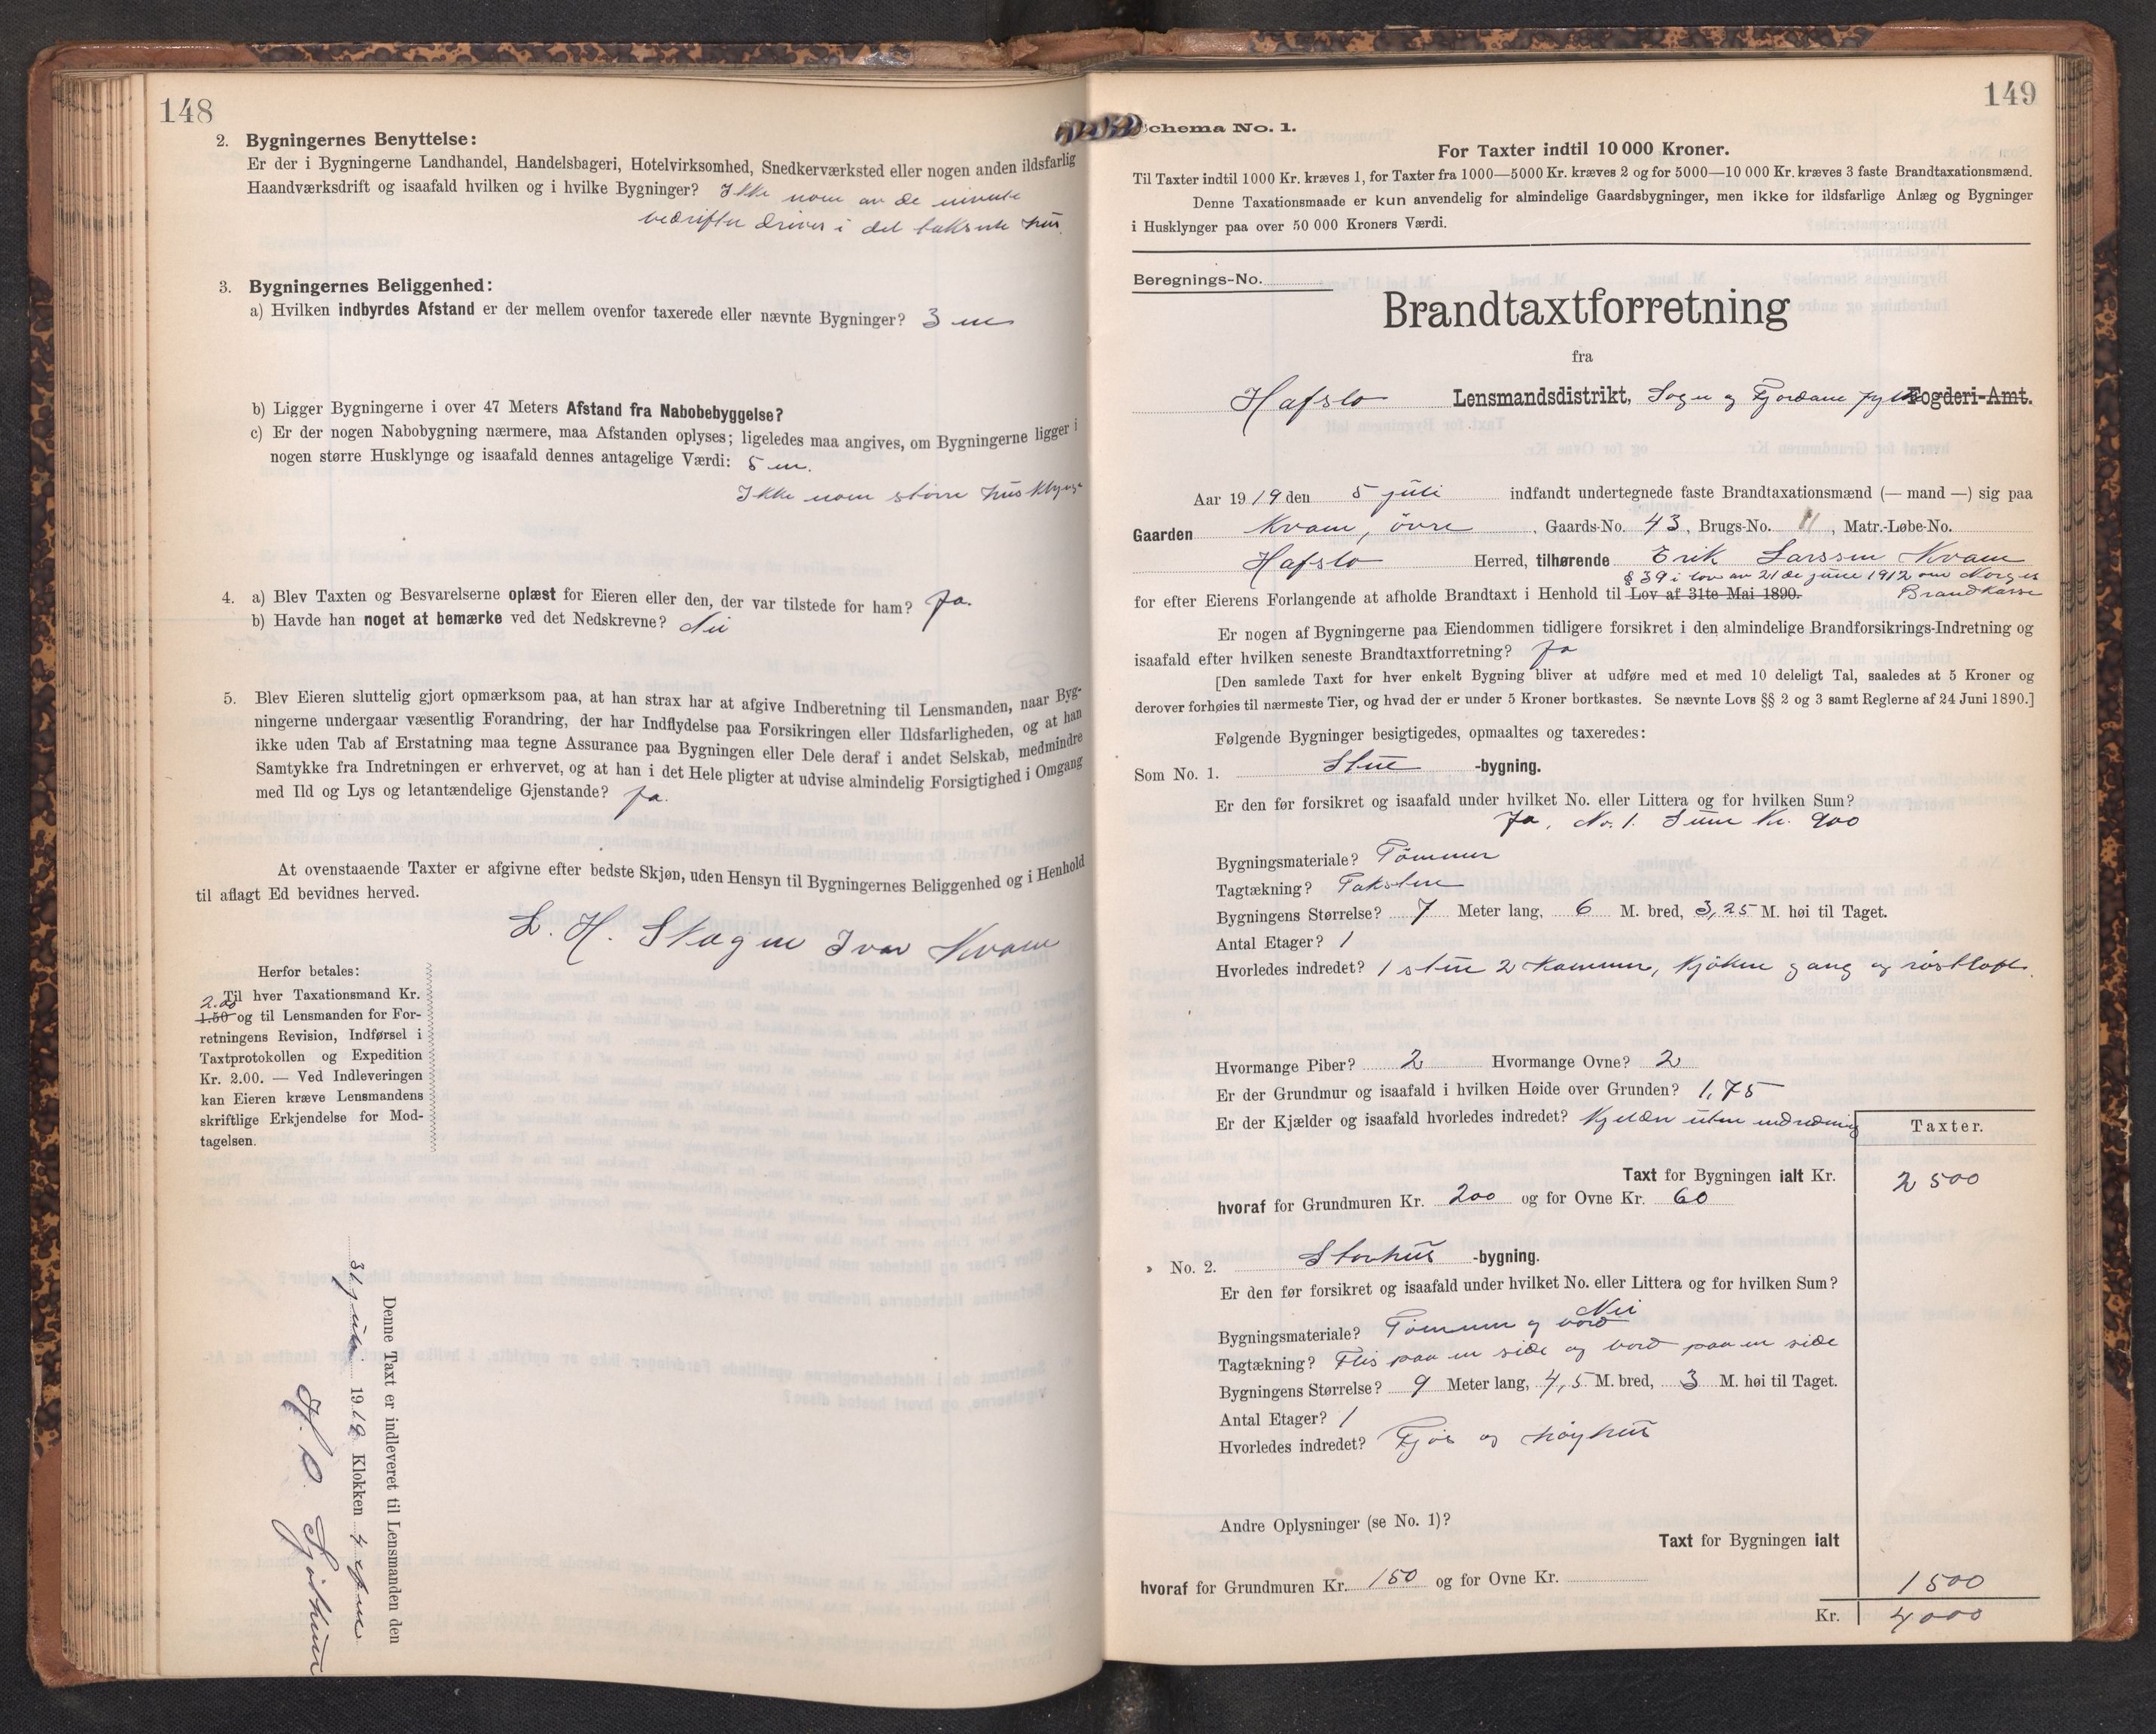 148
2. Bygningernes Benyttelse:
Er der i Bygningerne Landhandel, Handelsbageri, Hotelvirksomhed, Snedkerværksted eller nogen anden ildsfarlig
Haandværksdrift og isaafald hvilken og i hvilke Bygninger? Ikke noen av de nevnte
bedrifter drives i det takserte hus.
3. Bygningernes Beliggenhed:
a) Hvilken indbyrdes Afstand er der mellem ovenfor taxerede eller nævnte Bygninger? 3 m
b) Ligger Bygningerne i over 47 Meters Afstand fra Nabobebyggelse?
c) Er der nogen Nabobygning nærmere, maa Afstanden oplyses; ligeledes maa angives, om Bygningerne ligger i
nogen større Husklynge og isaafald dennes antagelige Værdi: 5 m.
Ikke noen større husklynge
4. a) Blev Taxten og Besvarelserne oplæst for Eieren eller den, der var tilstede for ham? Ja.
b) Havde han noget at bemærke ved det Nedskrevne? Nei
5. Blev Eieren sluttelig gjort opmærksom paa, at han strax har at afgive Indberetning til Lensmanden, naar Byg-
ningerne undergaar væsentlig Forandring, der har Indflydelse paa Forsikringen eller Ildsfarligheden, og at han
ikke uden Tab af Erstatning maa tegne Assurance paa Bygningen eller Dele deraf i andet Selskab, medmindre
Samtykke fra Indretningen er erhvervet, og at han i det Hele pligter at udvise almindelig Forsigtighed i Omgang
med Ild og Lys og letantændelige Gjenstande? Ja.
At ovenstaaende Taxter er afgivne efter bedste Skjøn, uden Hensyn til Bygningernes Beliggenhed og i Henhold
til aflagt Ed bevidnes herved.
L. H. Skagen Ivar Kvam
Herfor betales:
Til hver Taxationsmand Kr.
2.00
1.50 og til Lensmanden for For-
retningens Revision, Indførsel i
Taxtprotokollen og Expedition
Kr. 2.00. — Ved Indleveringen
kan Eieren kræve Lensmandens
skriftlige Erkjendelse for Mod-
tagelsen.
Denne Taxt er indleveret til Lensmanden den
31 juli 1919 Klokken 4 efm.
149
Schema No. 1.
For Taxter indtil 10 000 Kroner.
Til Taxter indtil 1000 Kr. kræves 1, for Taxter fra 1000—5000 Kr. kræves 2 og for 5000—10 000 Kr. kræves 3 faste Brandtaxationsmænd.
Denne Taxationsmaade er kun anvendelig for almindelige Gaardsbygninger, men ikke for ildsfarlige Anlæg og Bygninger
i Husklynger paa over 50 000 Kroners Værdi.
Beregnings-No.
Brandtaxtforretning
fra
Hafslo Lensmandsdistrikt, Sogn og Fjordane fylke Fogderi-Amt.
Aar 1919 den 5 juli indfandt undertegnede faste Brandtaxationsmænd (— mand —) sig paa
Gaarden Kvam, övre, Gaards-No. 43, Brugs-No. 11, Matr.-Løbe-No.
Hafslo Herred, tilhørende Erik Larssen Kvam
§ 39 i lov av 21de june 1912 om Norges
for efter Eierens Forlangende at afholde Brandtaxt i Henhold til Lov af 31te Mai 1890. Brandkasse
Er nogen af Bygningerne paa Eiendommen tidligere forsikret i den almindelige Brandforsikrings-Indretning og
isaafald efter hvilken seneste Brandtaxtforretning? Ja
[Den samlede Taxt for hver enkelt Bygning bliver at udføre med et med 10 deleligt Tal, saaledes at 5 Kroner og
derover forhøies til nærmeste Tier, og hvad der er under 5 Kroner bortkastes. Se nævnte Lovs §§ 2 og 3 samt Reglerne af 24 Juni 1890.]
Følgende Bygninger besigtigedes, opmaaltes og taxeredes:
Som No. 1. Stue -bygning.
Er den før forsikret og isaafald under hvilket No. eller Littera og for hvilken Sum?
Ja, No. 1. Sum Kr. 900
Bygningsmateriale? Tömmer
Tagtækning? Taksten
Bygningens Størrelse? 7 Meter lang, 6 M. bred, 3,25 M. høi til Taget.
Antal Etager? 1
Hvorledes indredet? 1 stue 2 kammer, kjöken gang og röstloft.
Hvormange Piber? 2 Hvormange Ovne? 2
Er der Grundmur og isaafald i hvilken Høide over Grunden? 1,75
Er der Kjælder og isaafald hvorledes indredet? Kjelder uten indredning
Taxter.
Taxt for Bygningen ialt Kr. 2500
hvoraf for Grundmuren Kr. 200 og for Ovne Kr. 60
No. 2. Storhus -bygning.
Er den før forsikret og isaafald under hvilket No. eller Littera og for hvilken Sum?
Nei
Bygningsmateriale? Tömmer og bord
Tagtækning? Flis paa en side og bord paa en side
Bygningens Størrelse? 9 Meter lang, 4,5 M. bred, 3 M. høi til Taget.
Antal Etager? 1
Hvorledes indredet? Fjös og höyhus
Andre Oplysninger (se No. 1)?
Taxt for Bygningen ialt
hvoraf for Grundmuren Kr. 150 og for Ovne Kr. 1500
Kr. 4000